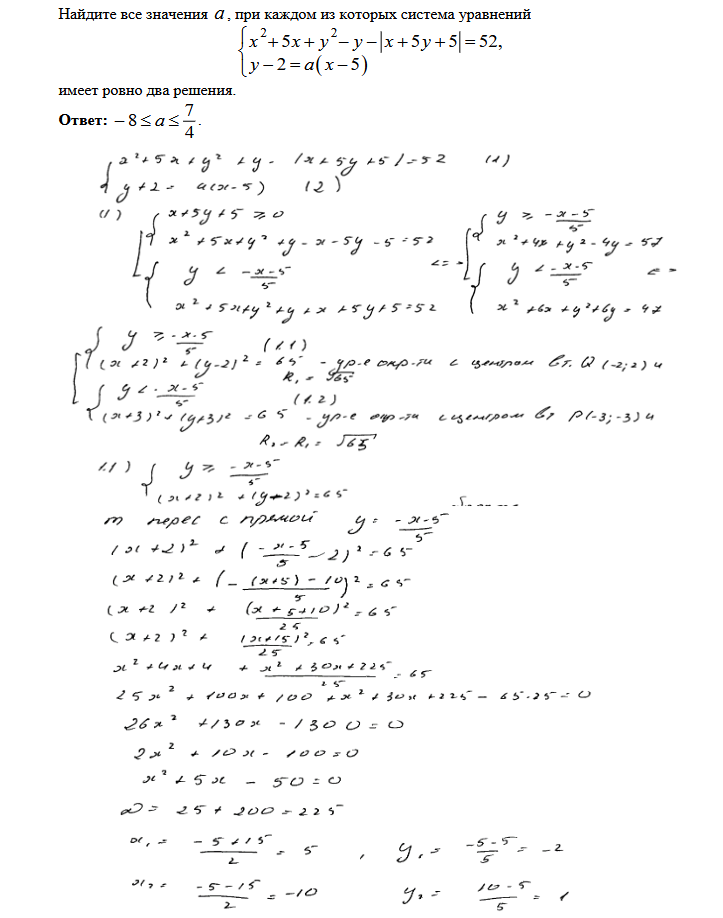 Найдите все значения a, при каждом из которых система уравнений
{ x²+5x+y²−y−|x+5y+5|=52,
{ y−2=a(x−5)
имеет ровно два решения.
Ответ: −8≤a≤7/4.
{ x²+5x+y²+y-|x+5y+5|=52 (1)
{ y+2= a(x-5) (2)
(1) [ { x+5y+5≥0 [ { y ≥ (-x-5)/5
x²+5x+y²+y-x-5y-5=52 <=> x²+4x+y²-4y=57
{ y < (-x-5)/5 { y < (-x-5)/5 <=>
x²+5x+y²+y+x+5y+5=52 x²+6x+y²+6y=47
[ { y ≥ (-x-5)/5 (1.1)
(x+2)²+(y-2)²=65 - ур-е окр-ти с центром в т. Q(-2;2) и R₁=√65
{ y < (-x-5)/5 (1.2)
(x+3)²+(y+3)²=65 - ур-е окр-ти с центром в т P(-3;-3) и
R₂=R₁=√65
1.1) { y ≥ (-x-5)/5
(x+2)²+(y-2)²=65
т перес с прямой y= (-x-5)/5
(x+2)²+((-x-5)/5-2)²=65
(x+2)²+((-(x+5)-10)/5)²=65
(x+2)²+(x+5+10)²/25=65
(x+2)²+(x+15)²/25=65
x²+4x+4+(x²+30x+225)/25=65
25x²+100x+100+x²+30x+225-65·25=0
26x²+130x-1300=0
2x²+10x-100=0
x²+5x-50=0
D=25+200=225
x₁= (-5+15)/2 = 5, y₁= (-5-5)/5 = -2
x₂= (-5-15)/2 = -10 y₂= (10-5)/5 = 1